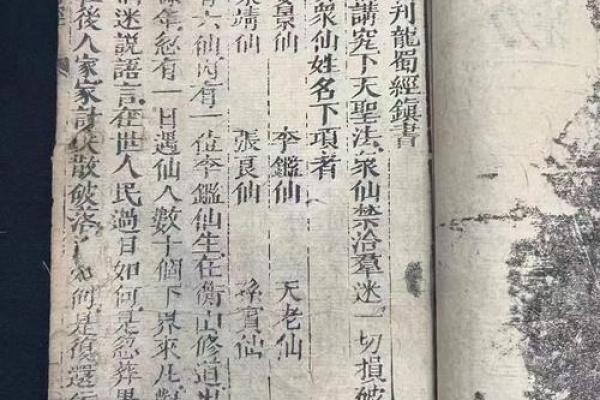 刋龍蜀經鎮書
講究下天聖法衆仙禁洽羣迷一切損破
衆仙姓名下項者
景仙 李鑑仙 天老仙
靖仙 張良仙 孫賓仙
有六仙內有一位李鑑仙生在衡山修道出
年忽有一日遇仙人數十個下界來凡對
迷説語言在世人民過日如何是忽葬
後人家家討散破落了如何是復還